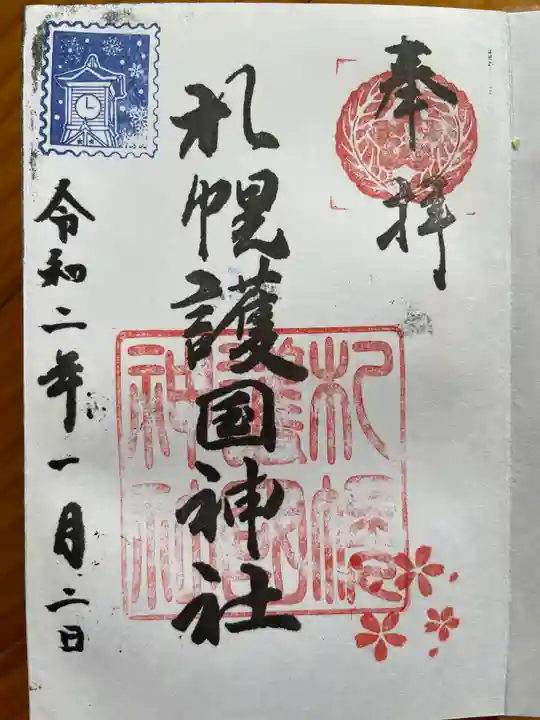 奉拝
札幌護国神社
札幌
護國
神社
令和二年一月二日